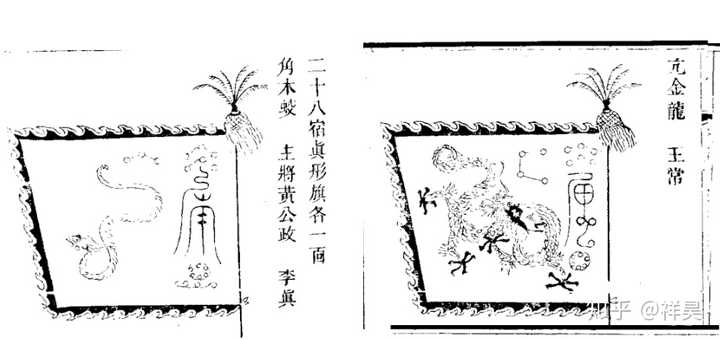 二十八宿眞形旗各一面
角木蛟 主將黃公政 李眞
亢金龍 王常
知乎 @祥昊